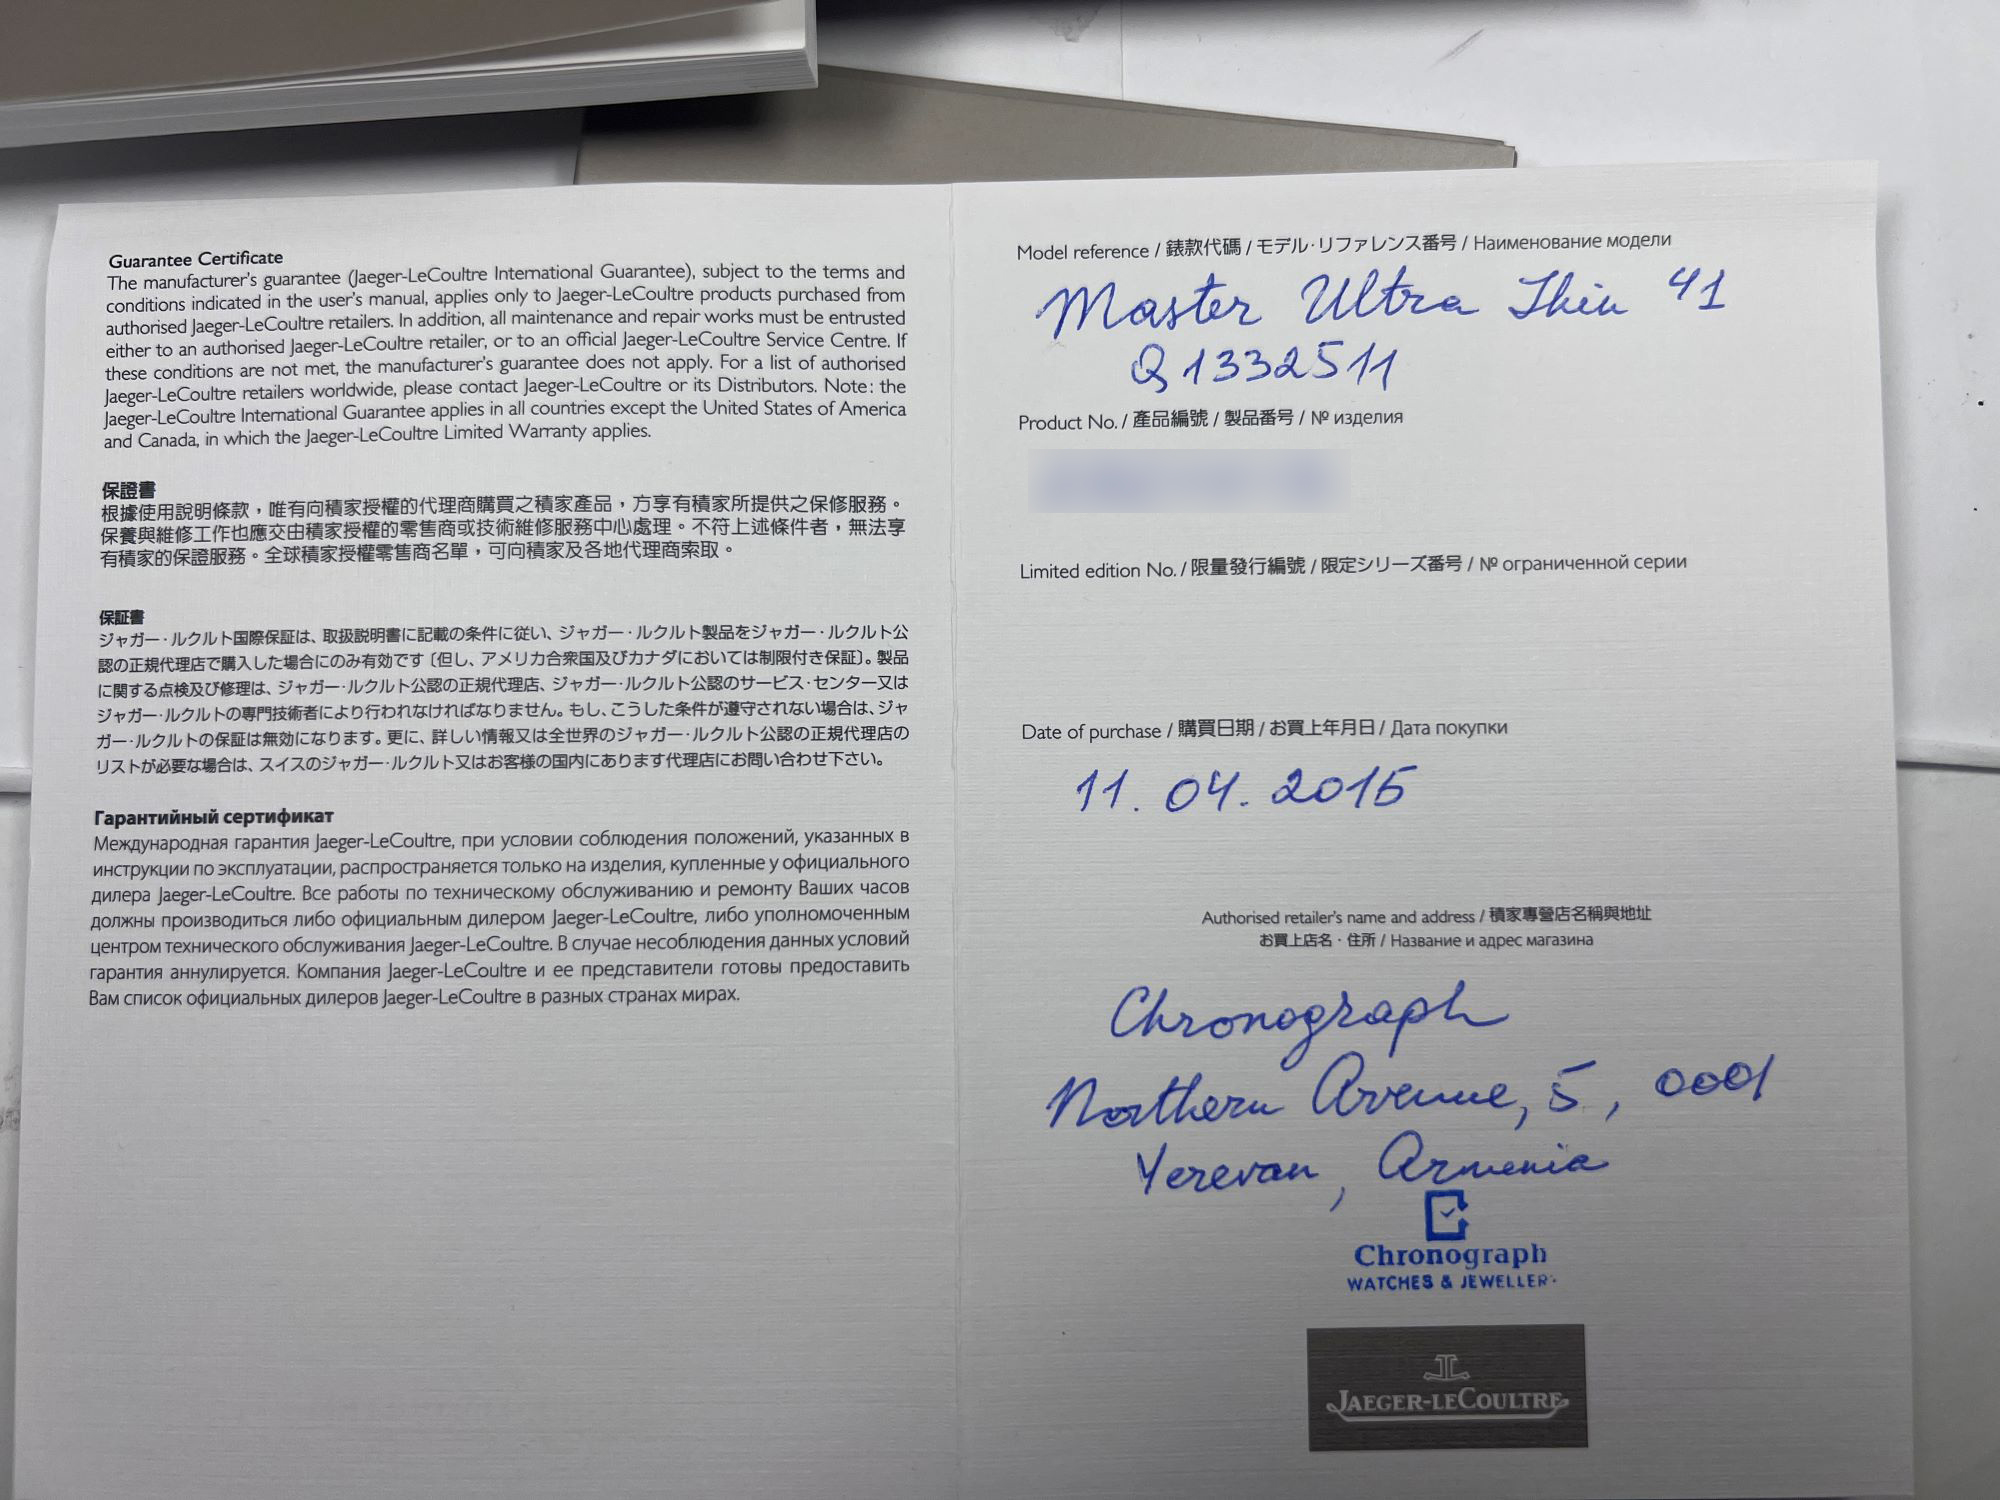 Guarantee Certificate
The manufacturer's guarantee (Jaeger-LeCoultre International Guarantee), subject to the terms and
conditions indicated in the user's manual, applies only to Jaeger-LeCoultre products purchased from
authorised Jaeger-LeCoultre retailers. In addition, all maintenance and repair works must be entrusted
either to an authorised Jaeger-LeCoultre retailer, or to an official Jaeger-LeCoultre Service Centre. If
these conditions are not met, the manufacturer's guarantee does not apply. For a list of authorised
Jaeger-LeCoultre retailers worldwide, please contact Jaeger-LeCoultre or its Distributors. Note: the
Jaeger-LeCoultre International Guarantee applies in all countries except the United States of America
and Canada, in which the Jaeger-LeCoultre Limited Warranty applies.
保證書
根據使用說明條款，唯有向積家授權的代理商購買之積家產品，方享有積家所提供之保修服務。
保養與維修工作也應交由積家授權的零售商或技術維修服務中心處理。不符上述條件者，無法享
有積家的保證服務。全球積家授權零售商名單，可向積家及各地代理商索取。
保証書
ジャガー・ルクルト国際保証は、取扱説明書に記載の条件に従い、ジャガー・ルクルト製品をジャガー・ルクルト公
認の正規代理店で購入した場合にのみ有効です〔但し、アメリカ合衆国及びカナダにおいては制限付き保証〕。製品
に関する点検及び修理は、ジャガー・ルクルト公認の正規代理店、ジャガー・ルクルト公認のサービス・センター又は
ジャガー・ルクルトの専門技術者により行われなければなりません。もし、こうした条件が遵守されない場合は、ジャ
ガー・ルクルトの保証は無効になります。更に、詳しい情報又は全世界のジャガー・ルクルト公認の正規代理店の
リストが必要な場合は、スイスのジャガー・ルクルト又はお客様の国内にあります代理店にお問い合わせ下さい。
Гарантийный сертификат
Международная гарантия Jaeger-LeCoultre, при условии соблюдения положений, указанных в
инструкции по эксплуатации, распространяется только на изделия, купленные у официального
дилера Jaeger-LeCoultre. Все работы по техническому обслуживанию и ремонту Ваших часов
должны производиться либо официальным дилером Jaeger-LeCoultre, либо уполномоченным
центром технического обслуживания Jaeger-LeCoultre. В случае несоблюдения данных условий
гарантия аннулируется. Компания Jaeger-LeCoultre и ее представители готовы предоставить
Вам список официальных дилеров Jaeger-LeCoultre в разных странах мирах.
Model reference / 錶款代碼 / モデル・リファレンス番号 / Наименование модели
Master Ultra Thin 41
Q1332511
Product No. / 產品編號 / 製品番号 / № изделия
Limited edition No. / 限量發行編號 / 限定シリーズ番号 / № ограниченной серии
Date of purchase / 購買日期 / お買上年月日 / Дата покупки
11.04.2015
Authorised retailer's name and address / 積家專營店名稱與地址
お買上店名・住所 / Название и адрес магазина
Chronograph
Northern Avenue, 5, 0001
Yerevan, Armenia
Chronograph
WATCHES & JEWELLER
JAEGER-LECOULTRE